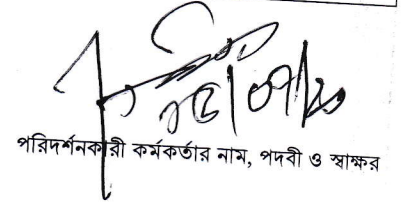 পরিদর্শনকারী কর্মকর্তার নাম, পদবী ও স্বাক্ষর